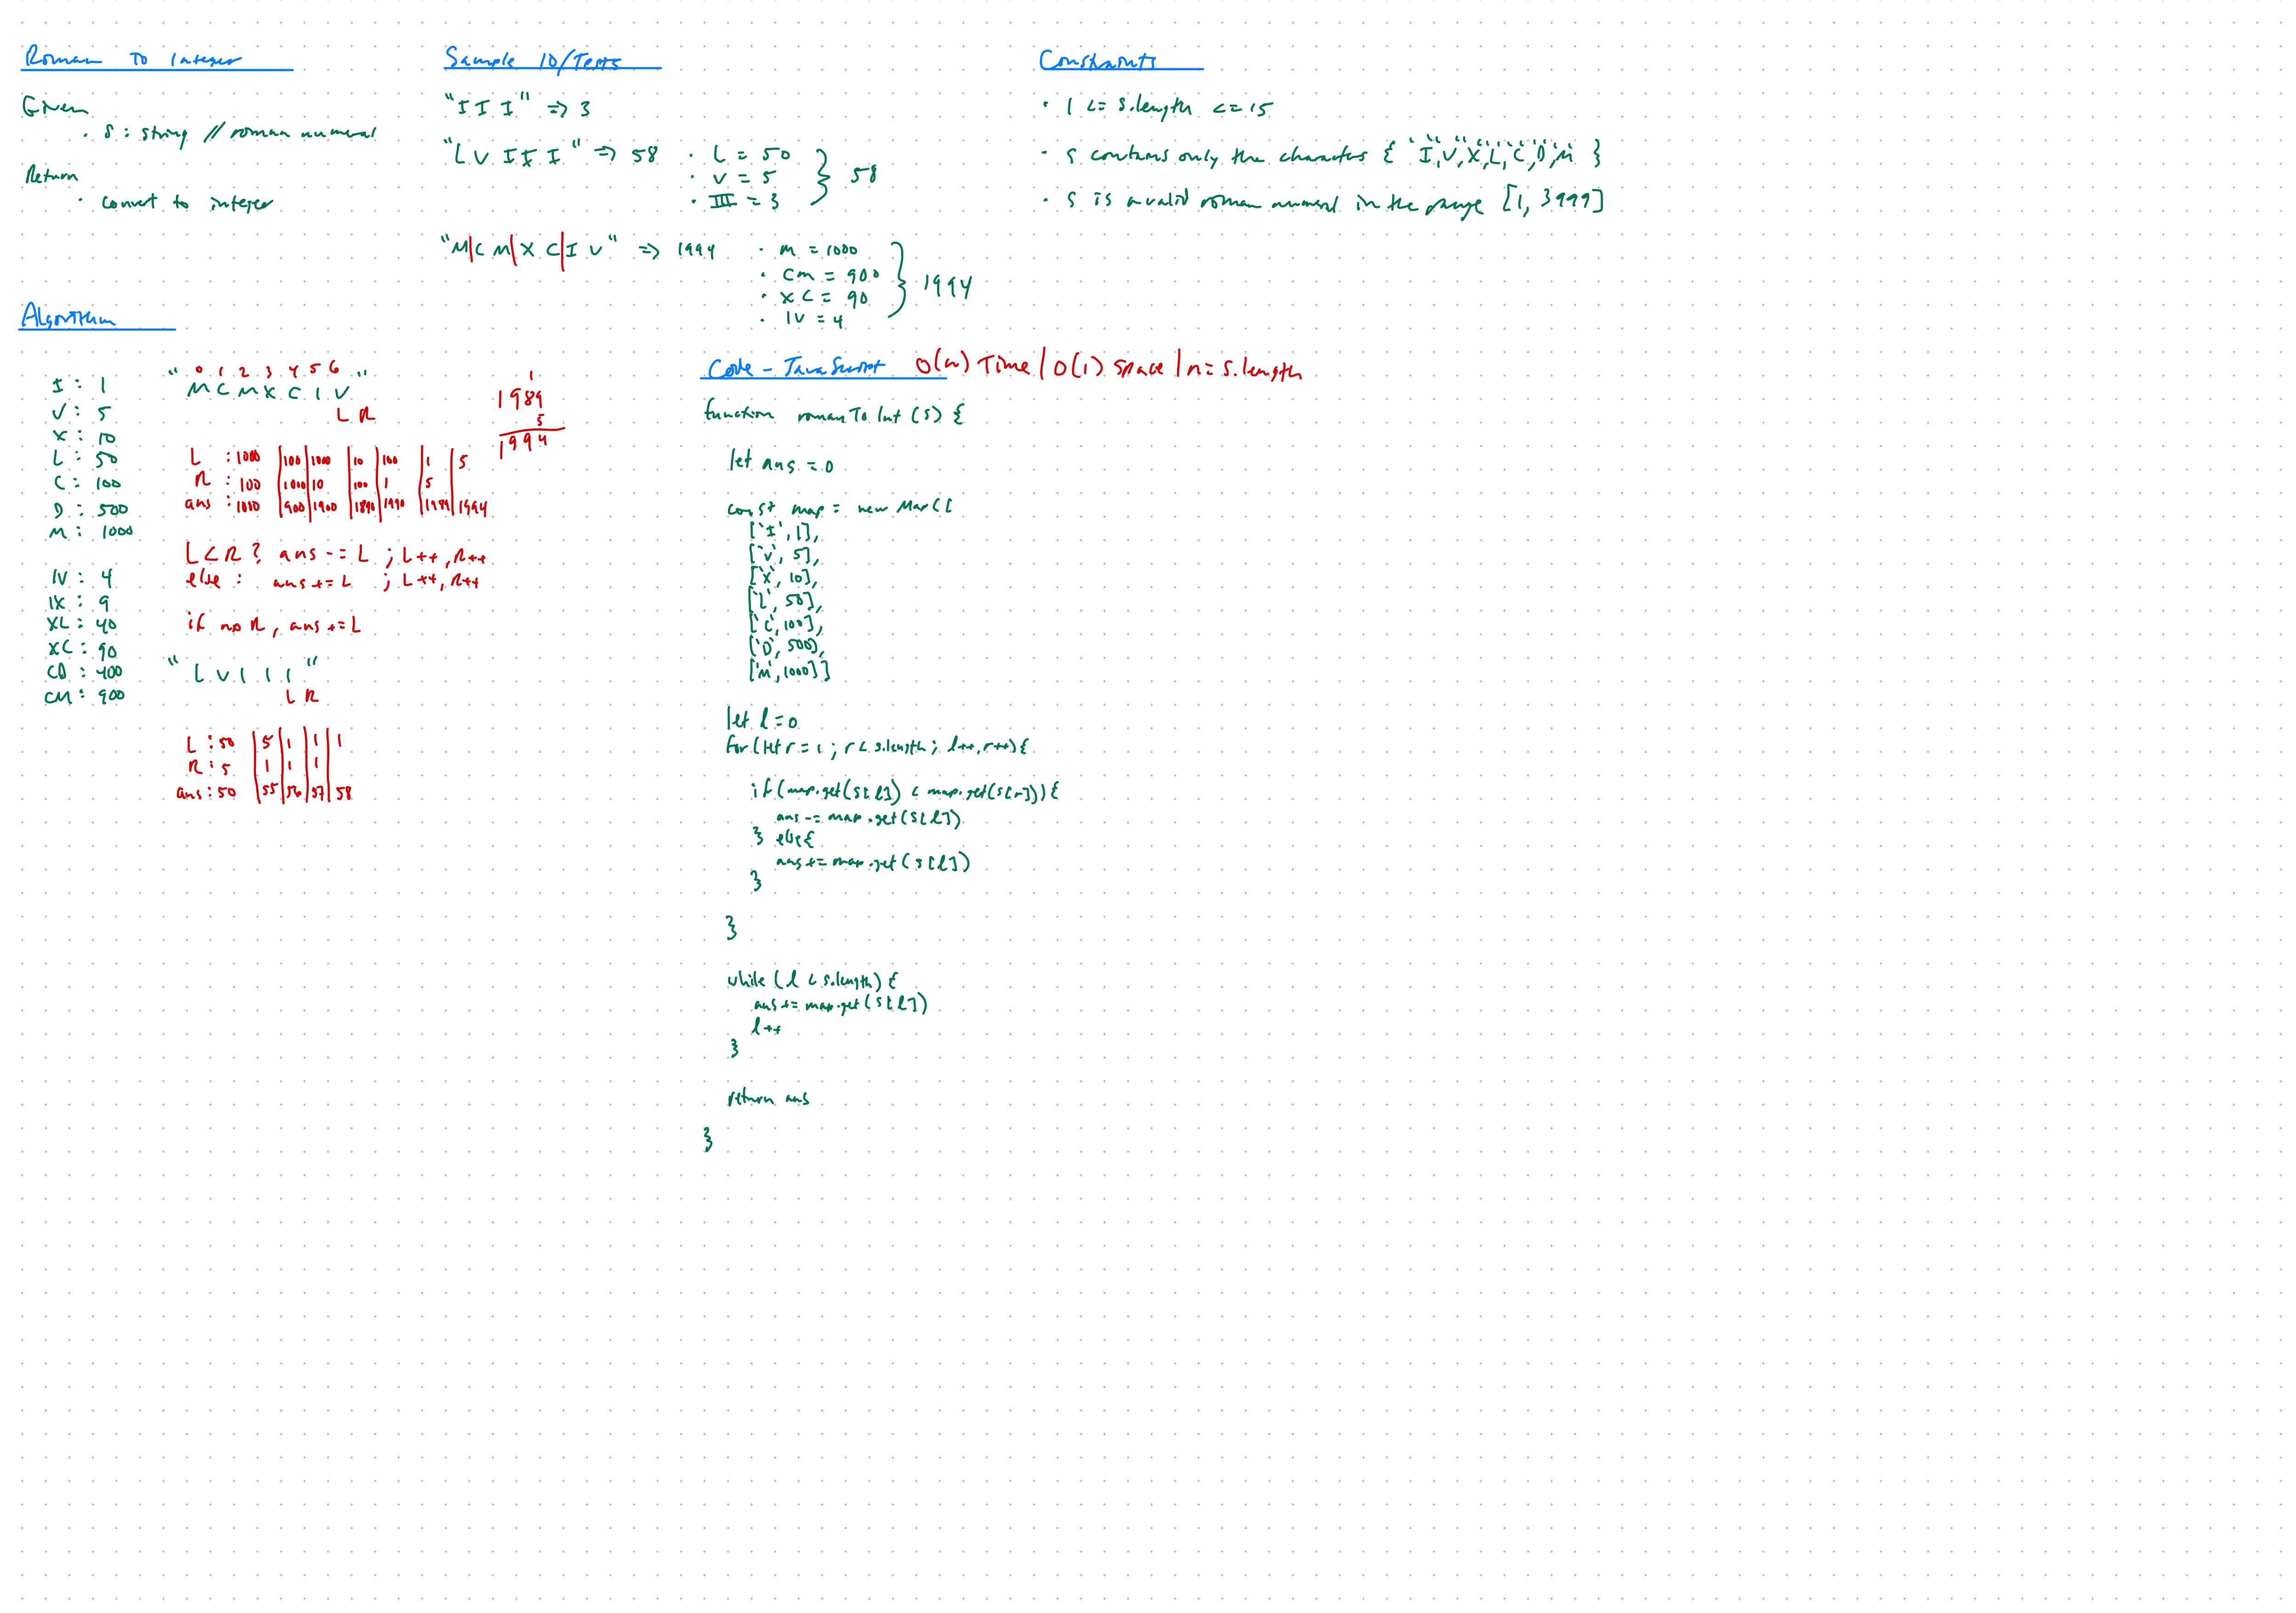 Roman To Integer
Given
· s : string // roman numeral
Return
· convert to integer
Sample IO/Tests
"I I I" => 3
"L V I I I" => 58
· L = 50
· V = 5
· III = 3
} 58
"M|C M|X C|I V" => 1994
· M = 1000
· CM = 900
· XC = 90
· IV = 4
} 1994
Constraints
· 1 <= s.length <= 15
· s contains only the characters { 'I','V','X','L','C','D','M' }
· s is a valid roman numeral in the range [1, 3999]
Algorithm
I : 1
V : 5
X : 10
L : 50
C : 100
D : 500
M : 1000
IV : 4
IX : 9
XL : 40
XC : 90
CD : 400
CM : 900
0 1 2 3 4 5 6
" M C M X C I V "
L R
1
1989
5
1994
L : 1000 | 100 | 1000 | 10 | 100 | 1 | 5
R : 100 | 1000 | 10 | 100 | 1 | 5
ans : 1000 | 900 | 1900 | 1890 | 1990 | 1989 | 1994
L < R ? ans -= L ; L++, R++
else : ans += L ; L++, R++
if no R, ans += L
" L V I I I "
L R
L : 50 | 5 | 1 | 1 | 1
R : 5 | 1 | 1 | 1
ans : 50 | 55 | 56 | 57 | 58
Code - JavaScript O(n) Time | O(1) Space | n = s.length
function romanToInt (s) {
let ans = 0
const map = new Map([
['I', 1],
['V', 5],
['X', 10],
['L', 50],
['C', 100],
['D', 500],
['M', 1000]]
let l = 0
for (let r = 1 ; r < s.length ; l++, r++) {
if (map.get(s[l]) < map.get(s[r])) {
ans -= map.get(s[l])
} else {
ans += map.get(s[l])
}
}
while (l < s.length) {
ans += map.get(s[l])
l++
}
return ans
}